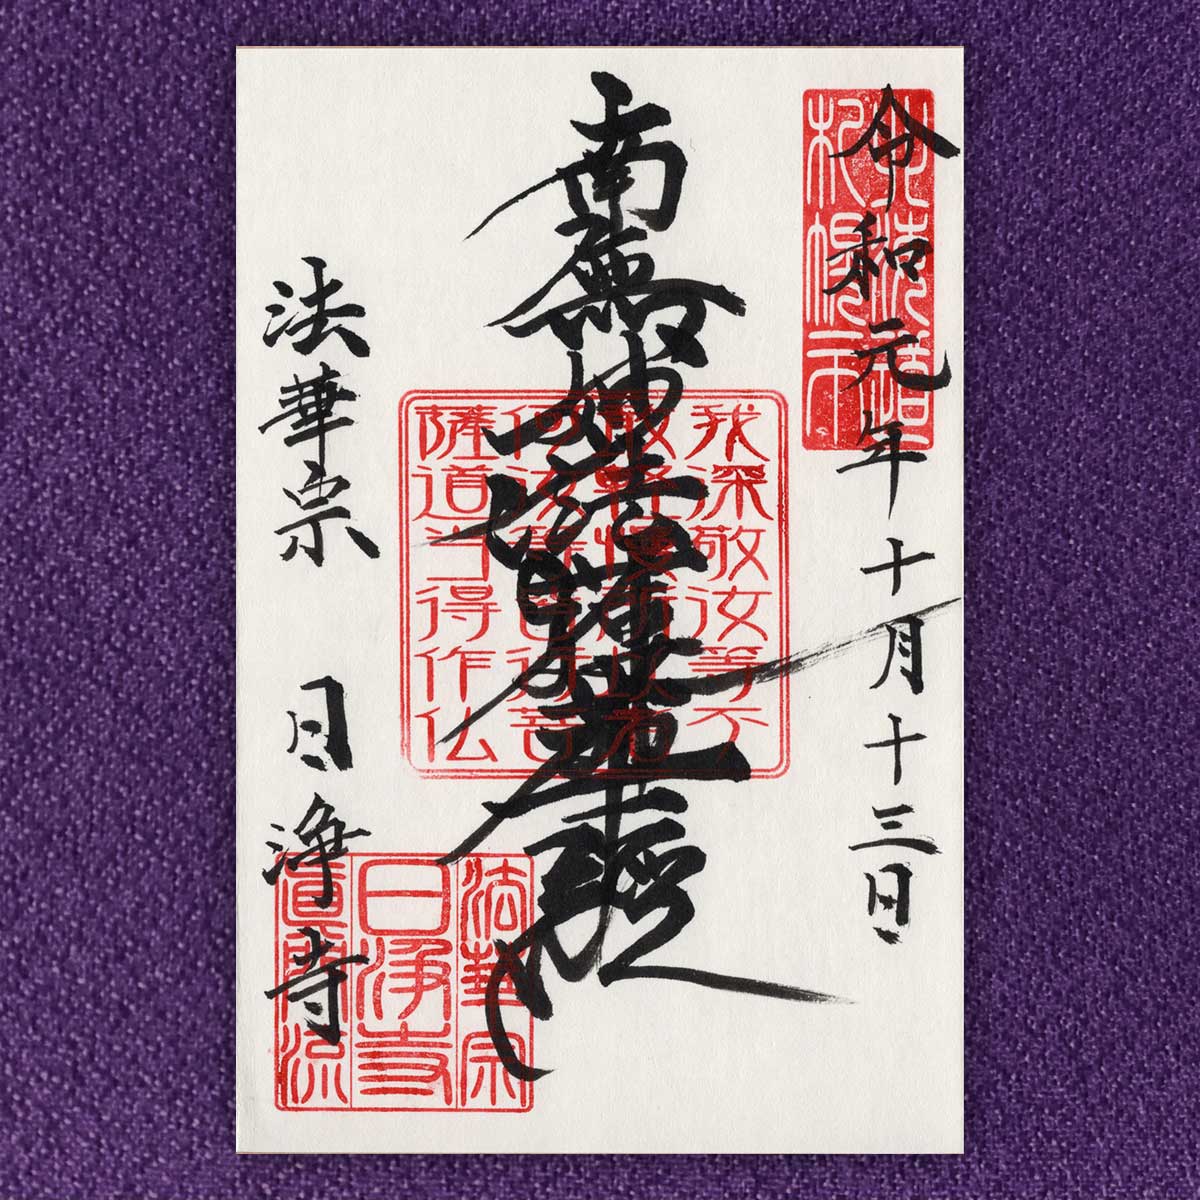 令和元年十月十三日
北海道
札幌市
南無妙法蓮華經
我深敬汝等不
敢軽慢所以者
何汝等皆行菩
薩道当得作仏
法華宗 日浄寺
法華宗
日浄寺
真門流